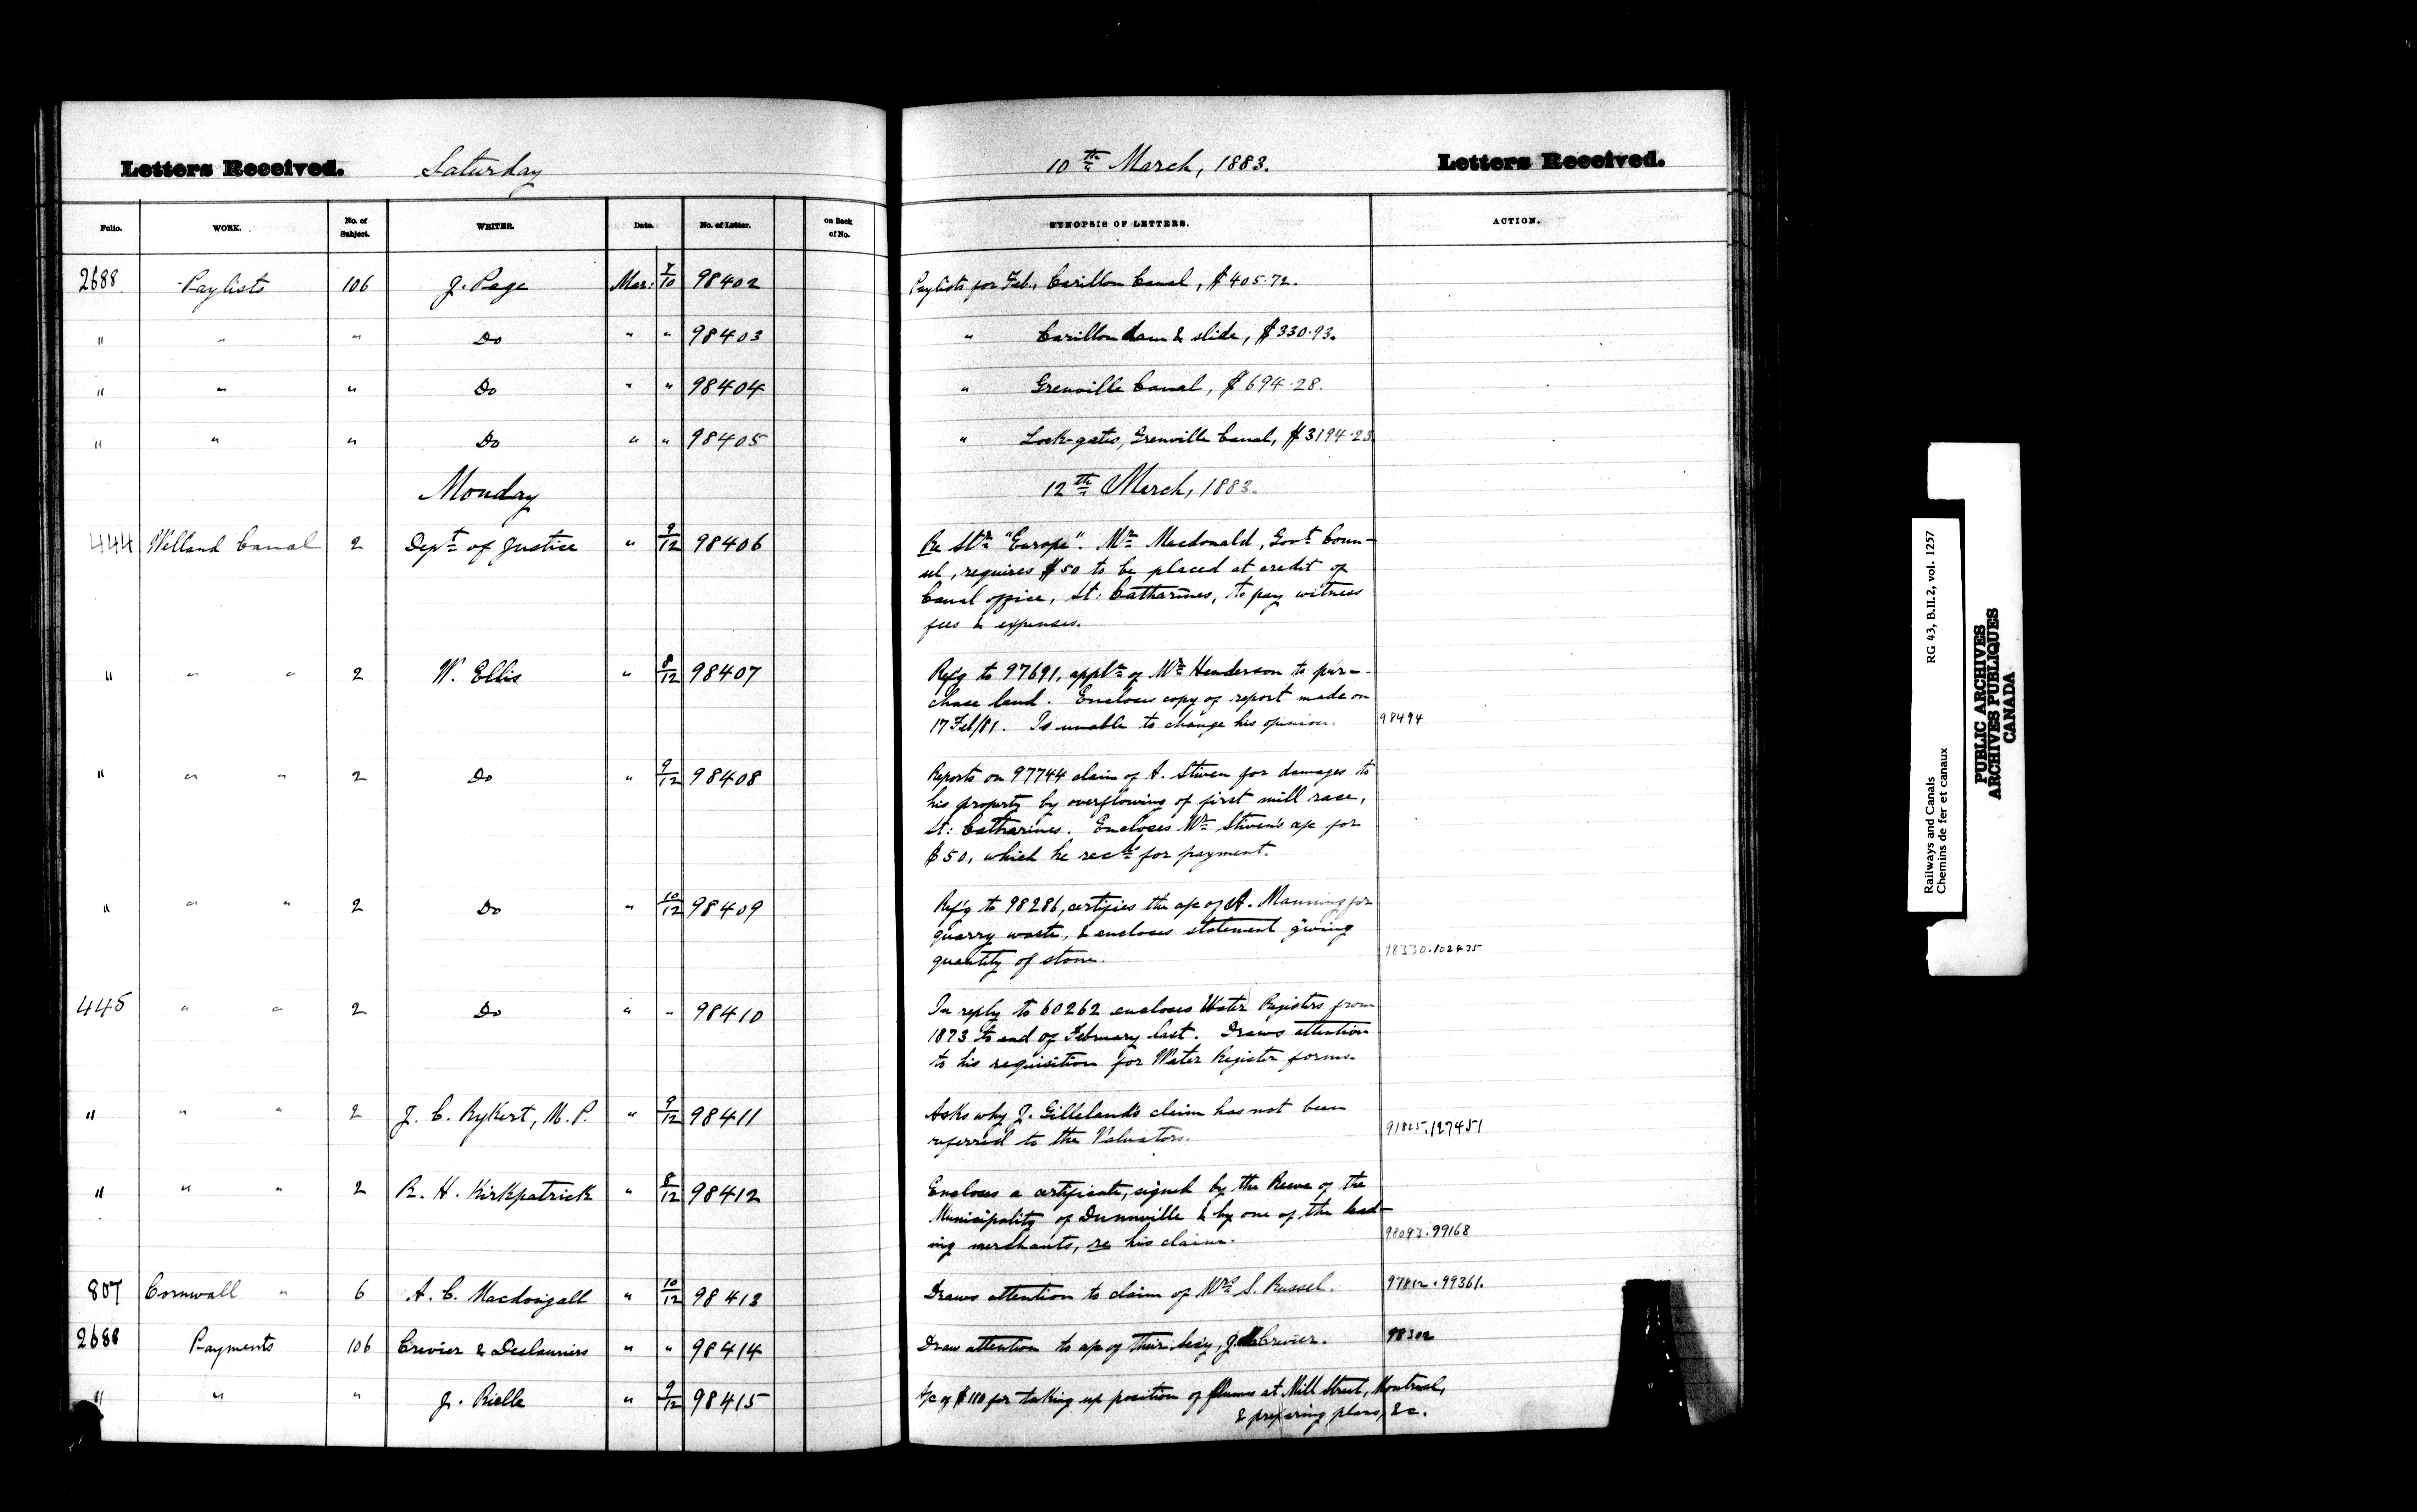 Letters Received. Saturday 10th March, 1883. Letters Received.
Folio. WORK. No. of Subject. WRITER. Date. No. of Letter. on Back of No. SYNOPSIS OF LETTERS. ACTION.
2688 Paylists 106 J. Page Mar: 7/10 98402 Paylists for Feb., Carillon Canal, $405.72.
" " " Do " " 98403 " Carillon dam & slide, $330.93.
" " " Do " " 98404 " Grenville Canal, $694.28.
" " " Do " " 98405 " Lock-gates, Grenville Canal, $3194.23
Monday 12th March, 1883.
444 Welland Canal 2 Dept of Justice " 9/12 98406 Re Str "Europe". Mr Macdonald, Govt Coun-
sel, requires $50 to be placed at credit of
Canal office, St: Catharines, to pay witness
fees & expenses.
" " " 2 W. Ellis " 8/12 98407 Ref'g to 97691, appltn of Mr Henderson to pur-
chase land. Encloses copy of report made on
17 Feb/81. Is unable to change his opinion. 98494
" " " 2 Do " 9/12 98408 Reports on 97744 claim of A. Stiven for damages to
his property by overflowing of first mill race,
St: Catharines. Encloses Mr Stiven's a/c for
$50, which he recds for payment.
" " " 2 Do " 10/12 98409 Ref'g to 98286, certifies the a/c of A. Manning for
quarry waste, & encloses statement giving
quantity of stone. 98330.102435
445 " " 2 Do " " 98410 In reply to 60262 encloses Water Registers from
1873 to end of February last. Draws attention
to his requisition for Water Register forms.
" " " 2 J. C. Rykert, M.P. " 9/12 98411 Asks why J. Gilleland's claim has not been
referred to the Valuators. 91825.127451
" " " 2 R. H. Kirkpatrick " 8/12 98412 Encloses a certificate, signed by the Reeve of the
Municipality of Dunnville & by one of the lead-
ing merchants, re his claim. 98093.99168
807 Cornwall " 6 A. C. Macdougall " 10/12 98413 Draws attention to claim of Mrs S. Russel. 97812.99361.
2688 Payments 106 Crevier & Deslauriers " " 98414 Draw attention to a/c of their Secy, J. Crevier. 98302
" " " J. Rielle " 9/12 98415 A/c of $110 for taking up position of flumes at Mill Street, Montreal,
& preparing plans, &c.
Railways and Canals RG 43, B.II.2, vol. 1257
Chemins de fer et canaux
PUBLIC ARCHIVES
ARCHIVES PUBLIQUES
CANADA